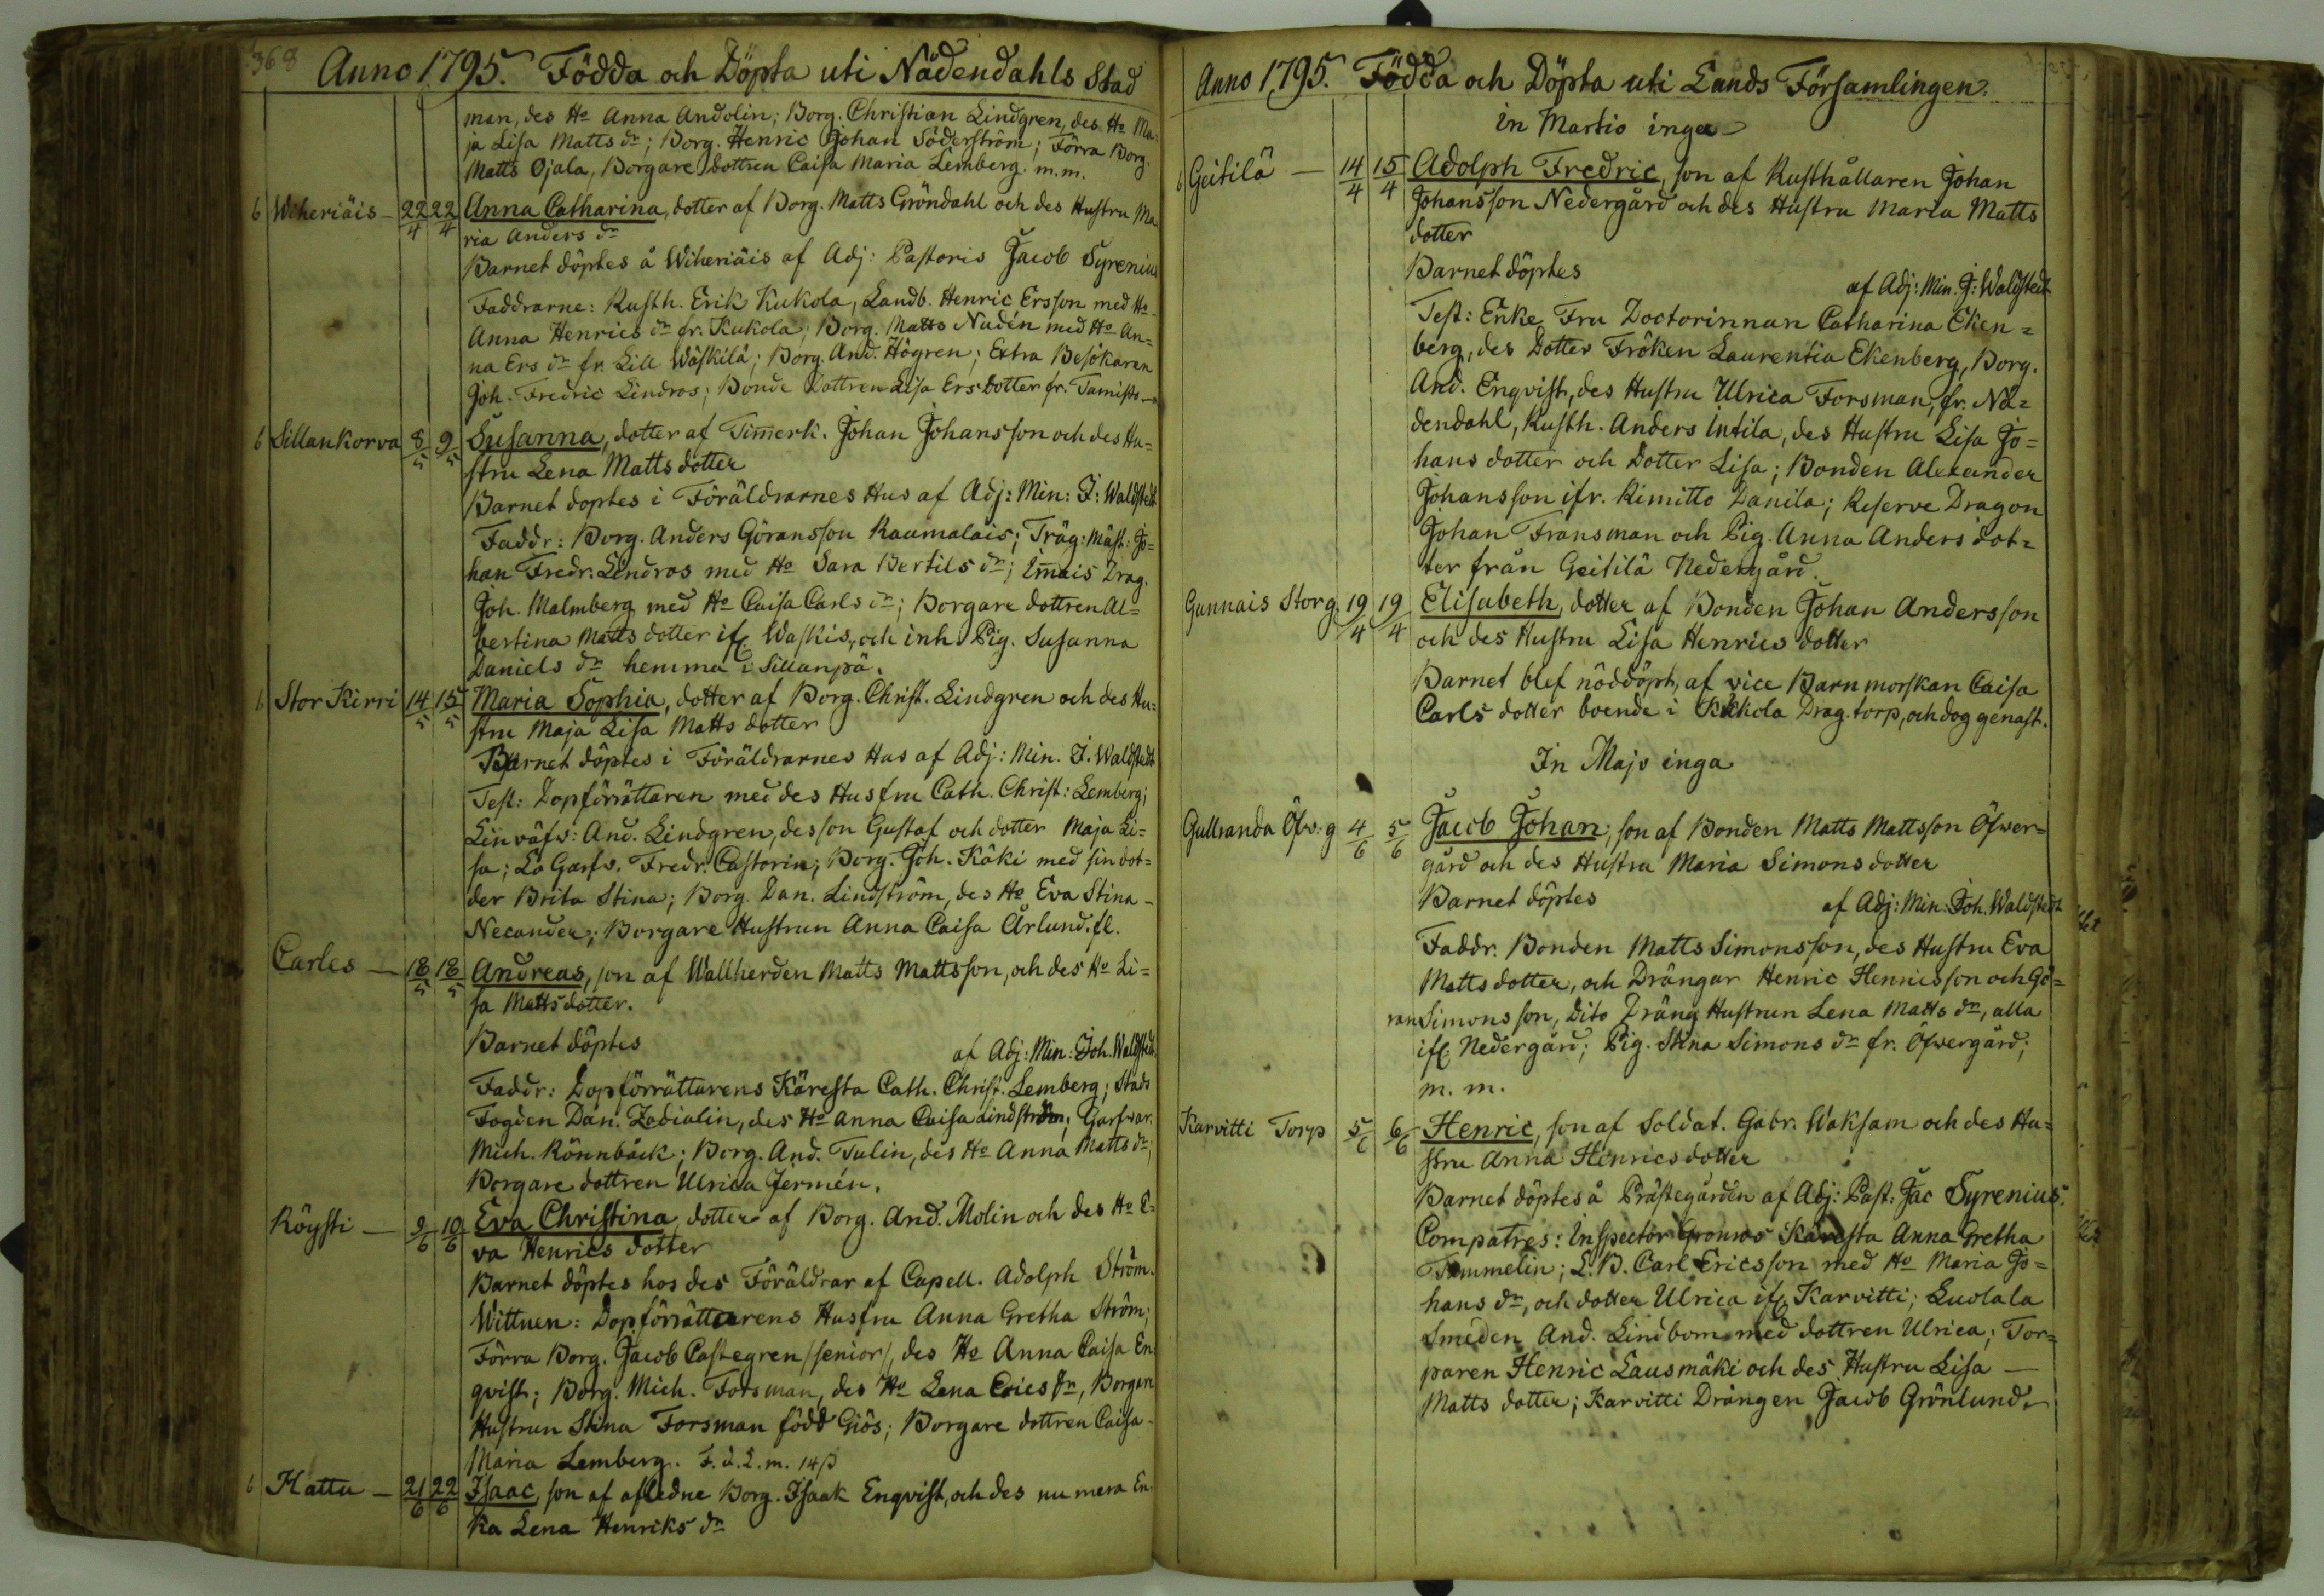 368
Anno 1795. Födda och Döpta uti Nådendahls Stad
man, des Ho Anna Andolin; Borg. Christian Lindgren, des Ho Ma-
ja Lisa Matts dr; Borg. Henric Johan Söderström; Förra Borg.
Matts Ojala, Borgare dottren Caisa Maria Lemberg. m.m.
6 Wiheriäis 22/4 22/4 Anna Catharina, dotter af Borg. Matts Gröndahl och des Hustru Ma
ria Anders dr
Barnet döptes å Wiheriäis af Adj: Pastoris Jacob Syrenius
Faddrarne: Rusth. Erik Kukola, Landb. Henric Ersson med Ho
Anna Henrics dr fr. Kukola; Borg. Matts Nudén med Ho An=
na Ers dr fr. Lill Wäskilä; Borg. And. Högren; Extra Besökaren
Joh. Fredric Lindros; Bonde Dottren Lisa Ersdotter fr. Tamisto
6 Sillankorva 8/5 9/5 Susanna, dotter af Timerk. Johan Johansson och des Hu=
stru Lena Matts dotter
Barnet doptes i Föräldrarnes Hus af Adj: Min: J: Waldstedt
Faddr: Borg. Anders Göransson Raumalais; Träg: Mäst: Jo=
han Fredr. Lindros med Ho Sara Bertils dr; Imais Drag.
Joh. Malmberg med Ho Caisa Carls dr; Borgare dottren Al=
bertina Matts dotter ifr. Waskis, och inh. Pig. Susanna
Daniels dr hemma i Sillanpä.
6 Stor Kirri 14/5 15/5 Maria Sophia, dotter af Borg. Christ. Lindgren och des Hu=
stru Maja Lisa Matts dotter
Barnet döptes i Föräldrarnes Hus af Adj: Min. J. Waldstedt
Test: Dopförrättaren med des Husfru Cath. Christ: Lemberg;
Lin väfv: And. Lindgren, des son Gustaf och dotter Maja Li=
sa; Lo Garfv. Fredr. Castorin; Borg. Joh. Käki med sin dot=
der Brita Stina; Borg. Dan. Lindström, des Ho Eva Stina
Necander; Borgare Hustrun Anna Caisa Årlund. fl.
Carles 18/5 18/5 Andreas, son af Wallherden Matts Mattsson, och des Ho Li=
sa Mattsdotter.
Barnet döptes af Adj: Min: Joh. Waldstedt
Faddr: Dopförrättarens Käresta Cath. Christ. Lemberg; Stads
Fogden Dan. Zadialin, des Ho Anna Caisa Lindström; Garfvar.
Mich. Rönnbäck; Borg. And. Tulin, des Ho Anna Matts dr;
Borgare dottren Ulrica Jermén.
Röysti 9/6 10/6 Eva Christina, dotter af Borg. And. Molin och des Ho E=
va Henrics dotter
Barnet döptes hos des Föräldrar af Capell. Adolph Ström.
Wittnen: Dopförrättarens Husfru Anna Gretha Ström;
Förra Borg. Jacob Castegren /senior/, des Ho Anna Caisa En
qvist; Borg. Mich. Forsman, des Ho Lena Erics dr, Borgare
Hustrun Stina Forsman född Giös; Borgare dottren Caisa
Maria Lemberg.
6 Hattu 21/6 22/6 Isaac, son af afledne Borg. Isaak Enqvist, och des nu mera En
ka Lena Henriks dr
Anno 1795. Födda och Döpta uti Lands Församlingen.
in Martio inga
6 Geitilä 14/4 15/4 Adolph Fredric, son af Rusthållaren Johan
Johansson Nedergård och des Hustru Maria Matts
dotter
Barnet döptes af Adj: Min. J: Waldstedt
Test: Enke Fru Doctorinnan Catharina Eken=
berg, des Dotter Fröken Laurentia Ekenberg, Borg.
And. Enqvist, des Hustru Ulrica Forsman, fr. Nå=
dendahl, Rusth. Anders Intila, des Hustru Lisa Jo=
hans dotter och Dotter Lisa; Bonden Alexander
Johansson ifr. Rimitto Danila; Reserve Dragon
Johan Fransman och Pig. Anna Anders dot=
ter från Geitilä Nedergård.
Gunnais Storg. 19/4 19/4 Elisabeth, dotter af Bonden Johan Andersson
och des Hustru Lisa Henrics dotter
Barnet blef nöddöpt, af vice Barnmorskan Caisa
Carls dotter boende i Kukola Drag. torp, och dog genast.
In Majo inga
Gullranda Öfv. g 4/6 5/6 Jacob Johan, son af Bonden Matts Mattsson Öfwer=
gård och des Hustru Maria Simons dotter
Barnet döptes af Adj: Min: Joh. Waldstedt
Faddr. Bonden Matts Simonsson, des Hustru Eva
Matts dotter, och Drängar Henric Henricsson och Gö=
ran Simons son, Dito Dräng Hustrun Lena Matts dr, alla
ifr. Nedergård; Pig. Stina Simons dr fr. Öfwergård;
m. m.
Karvitti Torp 5/6 6/6 Henric, son af Soldat. Gabr. Waksam och des Hu=
stru Anna Henrics dotter
Barnet döptes å Prästegården af Adj: Past: Jac Syrenius.
Compatres: Inspector Gronros Käresta Anna Gretha
Tammelin; L.B. Carl Ericsson med Ho Maria Jo=
hans dr, och dotter Ulrica ifr. Karvitti; Luolala
Smeden And. Lindbom med dottren Ulrica; Tor=
paren Henric Lausmäki och des Hustru Lisa
Matts dotter; Karvitti Drängen Jacob Grönlund.